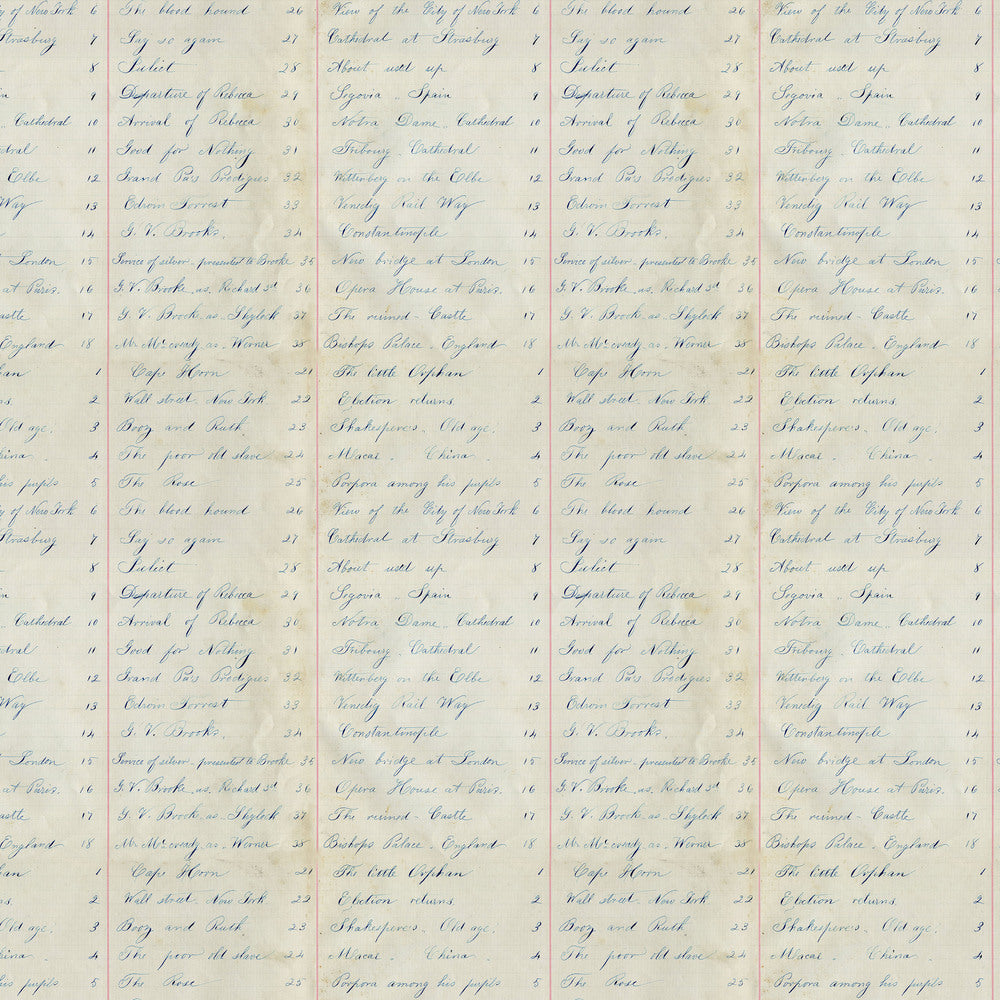 y of New York 6 The blood hound 26 View of the City of New York 6 The blood hound 26 View of the City of New York 6
Strasburg 7 Say so again 27 Cathedral at Strasburg 7 Say so again 27 Cathedral at Strasburg 7
8 Juliet 28 About used up 8 Juliet 28 About used up 8
n 9 Departure of Rebecca 29 Segovia „ Spain 9 Departure of Rebecca 29 Segovia „ Spain 9
„ Cathedral 10 Arrival of Rebecca 30 Notra Dame „ Cathedral 10 Arrival of Rebecca 30 Notra Dame „ Cathedral 10
dral 11 Good for Nothing 31 Fribourg . Cathedral 11 Good for Nothing 31 Fribourg . Cathedral 11
Elbe 12 Grand Pa's Prodigies 32 Wittenberg on the Elbe 12 Grand Pa's Prodigies 32 Wittenberg on the Elbe 12
Way 13 Edwin Forrest 33 Venedig Rail Way 13 Edwin Forrest 33 Venedig Rail Way 13
14 G. V. Brooks. 34 Constantinople 14 G. V. Brooks. 34 Constantinople 14
t London 15 Service of silver - presented to Brooke 35 New bridge at London 15 Service of silver - presented to Brooke 35 New bridge at London 15
at Paris. 16 G. V. Brooke . as. Richard 3rd 36 Opera House at Paris. 16 G. V. Brooke . as. Richard 3rd 36 Opera House at Paris. 16
astle 17 G. V. Brook . as. Shylock 37 The ruined - Castle 17 G. V. Brook . as. Shylock 37 The ruined - Castle 17
England 18 Mr. McCready as . Werner 38 Bishops Palace . England 18 Mr. McCready as . Werner 38 Bishops Palace . England 18
han 1 Cape Horn 21 The little Orphan 1 Cape Horn 21 The little Orphan 1
ns 2 Wall street . New York 22 Election returns 2 Wall street . New York 22 Election returns 2
Old age. 3 Booz and Ruth. 23 Shakesperes . Old age. 3 Booz and Ruth. 23 Shakesperes . Old age. 3
hina . 4 The poor old slave 24 Macai . China . 4 The poor old slave 24 Macai . China . 4
his pupils 5 The Rose 25 Porpora among his pupils 5 The Rose 25 Porpora among his pupils 5
y of New York 6 The blood hound 26 View of the City of New York 6 The blood hound 26 View of the City of New York 6
Strasburg 7 Say so again 27 Cathedral at Strasburg 7 Say so again 27 Cathedral at Strasburg 7
8 Juliet 28 About used up 8 Juliet 28 About used up 8
n 9 Departure of Rebecca 29 Segovia „ Spain 9 Departure of Rebecca 29 Segovia „ Spain 9
„ Cathedral 10 Arrival of Rebecca 30 Notra Dame „ Cathedral 10 Arrival of Rebecca 30 Notra Dame „ Cathedral 10
dral 11 Good for Nothing 31 Fribourg . Cathedral 11 Good for Nothing 31 Fribourg . Cathedral 11
Elbe 12 Grand Pa's Prodigies 32 Wittenberg on the Elbe 12 Grand Pa's Prodigies 32 Wittenberg on the Elbe 12
Way 13 Edwin Forrest 33 Venedig Rail Way 13 Edwin Forrest 33 Venedig Rail Way 13
14 G. V. Brooks. 34 Constantinople 14 G. V. Brooks. 34 Constantinople 14
t London 15 Service of silver - presented to Brooke 35 New bridge at London 15 Service of silver - presented to Brooke 35 New bridge at London 15
at Paris. 16 G. V. Brooke . as. Richard 3rd 36 Opera House at Paris. 16 G. V. Brooke . as. Richard 3rd 36 Opera House at Paris. 16
astle 17 G. V. Brook . as. Shylock 37 The ruined - Castle 17 G. V. Brook . as. Shylock 37 The ruined - Castle 17
England 18 Mr. McCready as . Werner 38 Bishops Palace . England 18 Mr. McCready as . Werner 38 Bishops Palace . England 18
han 1 Cape Horn 21 The little Orphan 1 Cape Horn 21 The little Orphan 1
ns 2 Wall street . New York 22 Election returns 2 Wall street . New York 22 Election returns 2
Old age. 3 Booz and Ruth. 23 Shakesperes . Old age. 3 Booz and Ruth. 23 Shakesperes . Old age. 3
hina . 4 The poor old slave 24 Macai . China . 4 The poor old slave 24 Macai . China . 4
his pupils 5 The Rose 25 Porpora among his pupils 5 The Rose 25 Porpora among his pupils 5